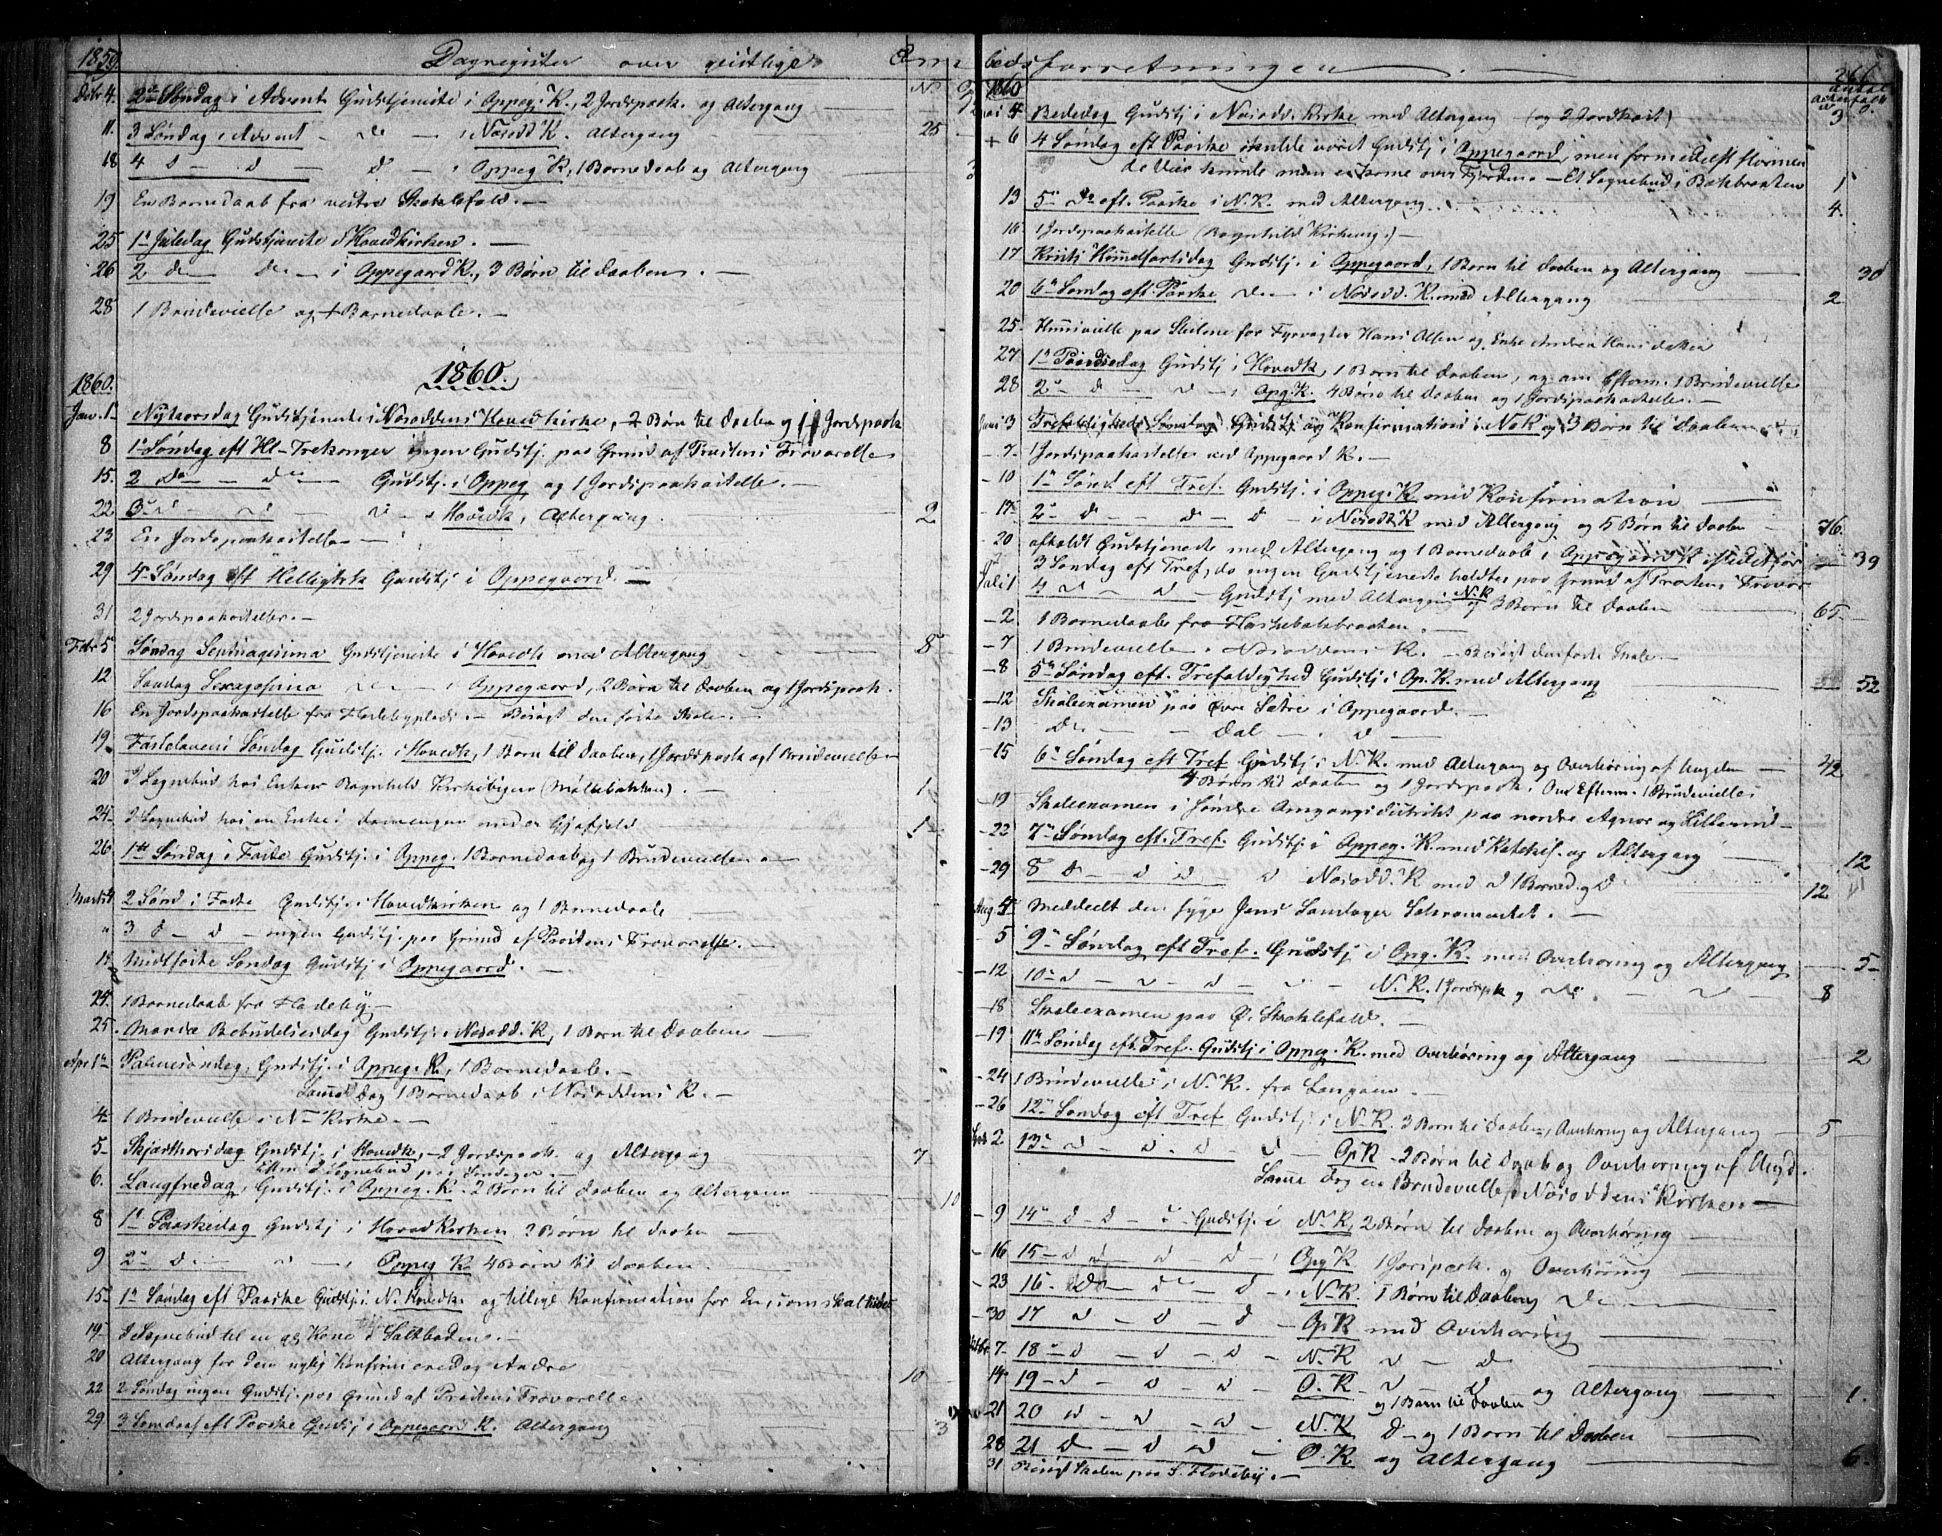 1859. Dagregister over geistlige Em
N. O.
Debr 4. 2den Søndag i Advent Gudstjeneste i Oppeg. K., 2 Jordspaak. og Altergang
11. 3 Søndag i Advent — de — i Nesodd K. Altergang 25
18 4 d — d d — i Oppeg K, 1 Barnedaab og Altergang 3
19 En Barnedaab fra vestre Skoklefald. —
25 1ste Juledag Gudstjeneste i Hovedkirken. —
26 2 de — de — i Oppegaard K., 3 Børn til Daaben. —
28 1 Brudevielse og 1 Barnedaab. —
1860.
1860.
Jan. 1 Nytaarsdag Gudstjeneste i Nesoddens Hovedkirke, 2 Børn til Daaben og 1 Jordspaak
8 1 Søndag eft Hl-Trekonger ingen Gudstj. paa Grund af Præstens Fraværelse
15. 2 de — de Gudstj. i Oppeg og 1 Jordspaakastelse. —
22 3 d — d — d — i Hovedk, Altergang. 2
23 En Jordspaakastelse —
29 4 Søndag eft Helligtrk Gudstj i Oppegaard. —
31 2 Jordspaakastelser. —
Febr 5 Søndag Septuagesima Gudstjeneste i Hovedk med Altergang 8
12 Søndag Sexagesima de — i Oppegaard, 2 Børn til Daaben og 1 Jordspaak.
16 En Jordspaakastelse fra — Besøgt den faste Skole. —
19. Fastelavens Søndag Gudstj. i Hovedk, 1 Børn til Daaben, 1 Jordspaak og 1 Brudevielse
20 I Sognebud hos Enken Ragnhild Kirkebyen (Møllebakken). 1
24. I Sognebud hos en Enke i under Gjøfjeld 1
26. 1ste Søndag i Faste Gudstj. i Oppeg. 1 Barnedaab og 1 Brudevielse. —
Marts 4 2 Sønd i Faste Gudstj. i Hovedkirken og 1 Barnedaab.
" 3 d — d — ingen Gudstj. paa Grund af Præstens Fraværelse. —
18 Midtfaste Søndag Gudstj i Oppegaard. —
24. 1 Barnedaab fra Fladeby —
25. Mariæ Bebudelsesdag Gudstj. i Nesodd. K, 1 Børn til Daaben
Apr 1 Palmesøndag, Gudstj. i Oppeg. K, 1 Barnedaab. —
Samme Dag 1 Barnedaab i Nesoddens K. —
4. 1 Brudevielse i N. Kirke. —
5. Skjærthorsdag Gudstj. i Hovedk, 2 Jordspaak. og Altergang 7
Eftm I Sognebud paa —
6. Langfredag, Gudstj. i Oppeg. K. 2 Børn til Daaben og Altergang 10
8 1 Paaskedag Gudstj i Hovedkirken 3 Børn til Daaben —
9 2 d — d — i Oppeg K. 4 Børn til Daaben. —
15. 1 Søndag eft Paaske Gudstj. i N. Hovedk og tillige Konfirmation for En, som skal
19. I Sognebud til en Kone i Saltboden. —
20 Altergang for den nylig Konfirmerede og Andre 10
22 2 Søndag ingen Gudstj. paa Grund af Præstens Fraværelse.
29. 3 Søndag eft Paaske Gudstj i Oppegaard K. Altergang 3
bedsforretningen —
266
1860 Antal
N. O.
Mai 4 Bededag Gudstj i Nesodd. Kirke med Altergang (og 2 Jordkast) 3
6 4 Søndag eft Paaske skulde været Gudstj i Oppegaard, men formedelst stormen
de Veir kunde man ei komme over Fjorden — Et Sognebud i Bakbraaten 1
13 5 de eft. Paaske i N. K. med Altergang 4.
16 1 Jordspaakastelse (Ragnhild Kirkeng.) —
17 Kristi Himmelfartsdag Gudstj. i Oppegaard, 1 Børn til Daaben og Altergang 30
20 6 Søndag eft. Paaske de — i Nesodd. K. med Altergang 2
25. Hmvielse paa Steilene for Fyrvogter Hans Olsen og Enke Andrea Hansdatter
27 1 Pindsedag Gudstj i Hovedk, 1 Børn til Daaben, og om Efterm. 1 Brudevielse
28 2 d — d — i Opg. K. 4 Børn til Daaben og 1 Jordspaakastelse. —
Juni 3 Trefoldigheds Søndag Gudstj og Konfirmation i N. K og 3 Børn til Daaben
7. 1 Jordspaakastelse ved Oppegaard K. —
10 1 Sønd eft Tref. Gudstj. i Oppeg. K med Konfirmation
17. 2 d — d — d — i Nesodd. K med Altergang og 5 Børn til Daaben 76.
20 afholdt Gudstjeneste med Altergang og 1 Barnedaab i Oppegaard K istedetfor 39
3 Søndag eft Tref, da ingen Gudstjeneste holdtes paa Grund af Præstens Fravær
Juli 1 4 d — d — Gudstj med Altergang N. K og 3 Børn til Daaben 65.
2 1 Barnedaab fra —
7 1 Brudevielse i Nesoddens K. — Besøgt den faste Skole. —
8 5 Søndag eft. Trefoldighed Gudstj i Op. K. med Altergang 52
12 Skoleexamen paa Øvre Sætre i Oppegaard. —
13 de — Dal — i d —
15 6 Søndag eft Tref Gudstj. i N. K. med Altergang og Overhøring af Ungdm 42
4 Børn til Daaben og 1 Jordspaak. Om Efterm. 1 Brudevielse
19 Skoleexamen i Søndre Omgangsdistrikt paa nordre Agnor og —
22 7 Søndag eft. Tref. Gudstj. i Oppeg. K. med Katekis. og Altergang 12
29 8 d — d — d d Nesodd. K med d 1 Barned. og d 12
Aug. 4 Meddeelt den syge Jens Sakramentet. —
5 9 Søndag eft Tref. Gudstj i Opg. K. med Overhøring og Altergang 5
12 10 d — d — d — N. K. 1 Jordspk og d. — 8
18 Skoleexamen paa Ø. Skoklefald. —
19 11 Søndag eft. Tref. Gudstj i Oppeg. K. med Overhøring og Altergang 2
24 1 Brudevielse i N. K. fra Langøen. —
26 12 Søndag eft Tref Gudstj i N. K. 3 Børn til Daaben, Overhøring og Altergang 5
2. 13 d — d. d. d Op K — 2 Børn til Daab og Overhøring af Ungd.
Samme Dag en Brudevielse i Nesoddens Kirken —
9 14 d — d — Gudstj. i N. K, 2 Børn til Daaben og Overhøring
16 15 — d — d — d — Opg K 1 Jordspaak. og Overhøring
23 16 — de — de d — N. K. 1 Børn til Daaben og de
30 17 d — d — d — Op K med Overhøring
7 18 — d — d — d — N. K d — d
14 19 — d — d — d — O. K d — d og Altergang 1.
og 1 Barn til Daaben
21 20 d — d — d — N. K d — og 1 Børn til Daaben
28 21 d — d d — O. K og Altergang 6.
31 Besøgt Skolen paa S. Fladeby. —